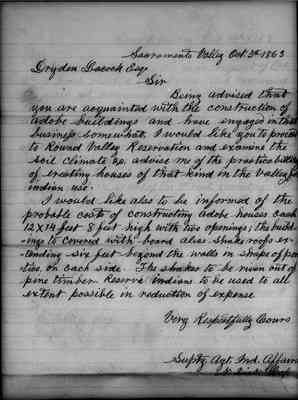 Sacramento Valley Oct 2d 1863
Dryden Lacock Esq
Sir
Being advised that
you are acquainted with the construction of
adobe buildings and have engaged in that
business somewhat, I would like you to proceed
to Round Valley Reservation and examine the
soil climate &c, advise me of the practicability
of erecting houses of that kind in the Valley for
indian use.
I would like also to be informed of the
probable costs of constructing Adobe houses each
12X14 feet 8 feet high with two openings; the build-
-ings to covered with board alias Shake roofs ex-
-tending six feet beyond the walls in shape of por-
ticos, on each side. The shakes to be riven out of
pine timber. Reserve Indians to be used to all
extent possible in reduction of expense
Very Respectfully Yours
Supty Agt. Ind. Affairs